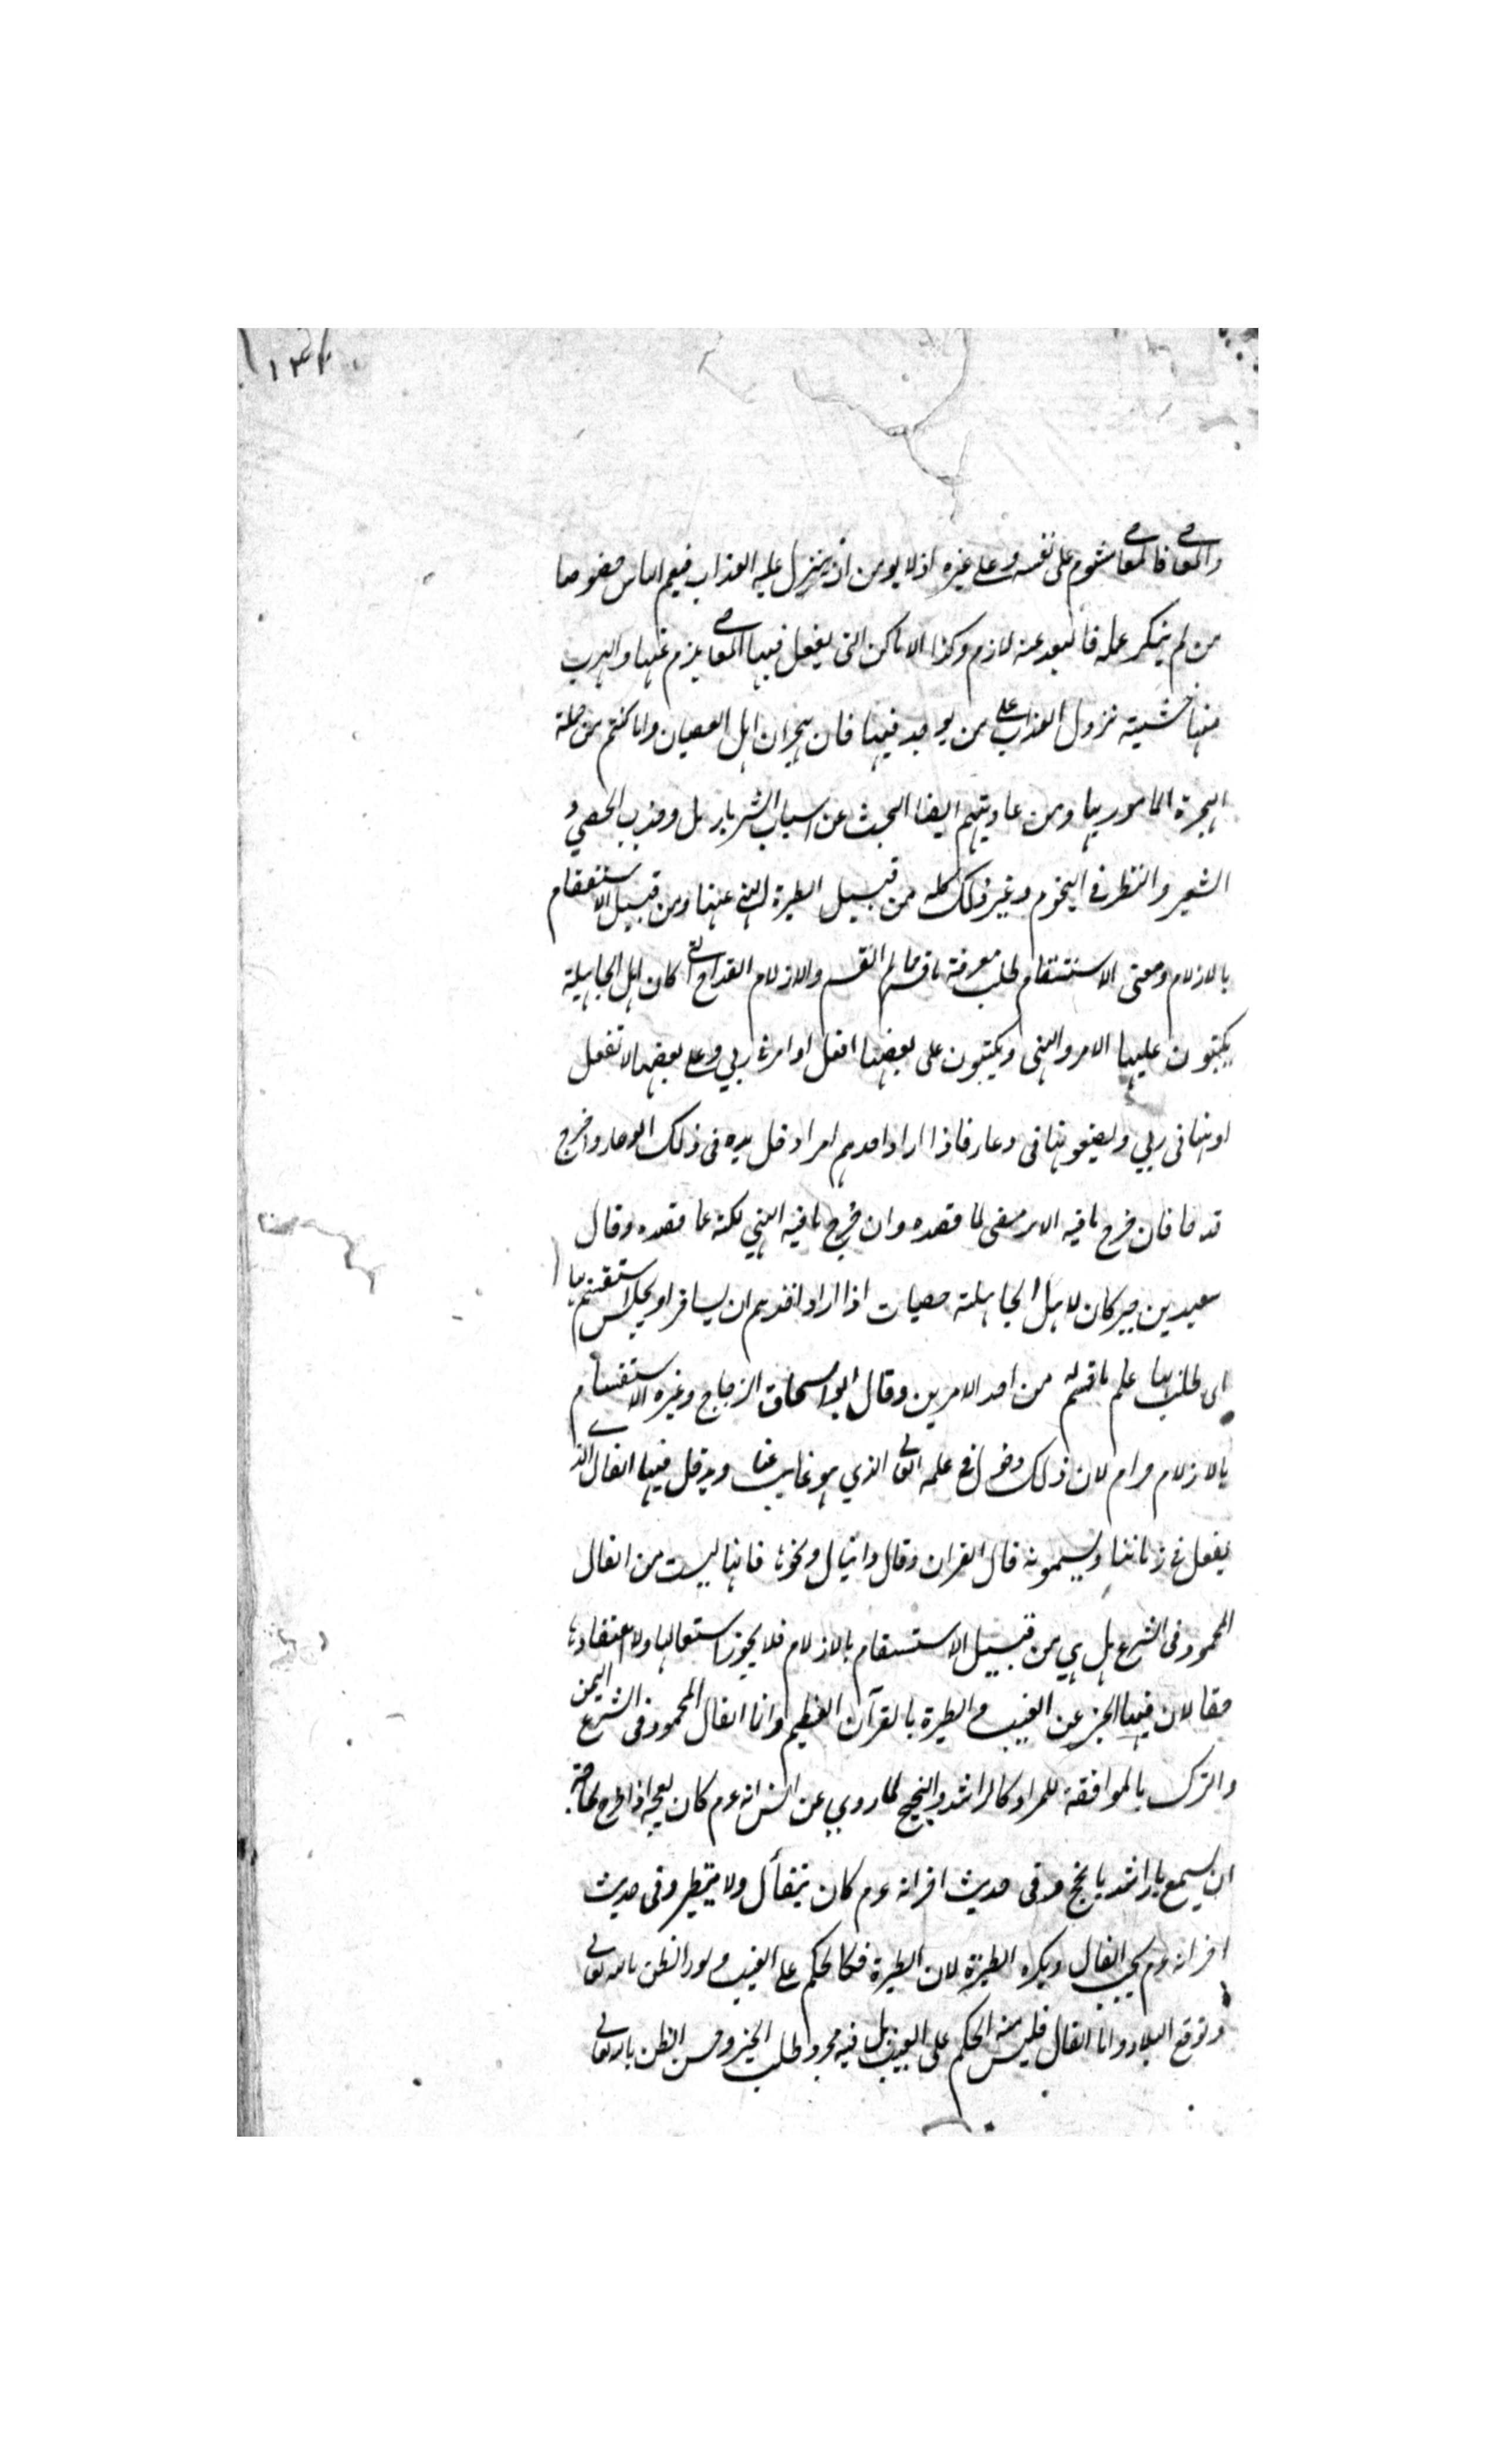 ١٣٤
والمعاصي فالمعاصي مشوم على نفسه وعلى غيره اذ لا يومن ان ينزل عليه العذاب فيعم الناس خصوصا
من لم ينكر عمله فالبعد عنه لازم وكذا الاماكن التى يفعل فيها المعاصي يلزم عنها والهرب
منها خشية نزول العذاب على من يوجد فيها فان هجران اهل العصيان واماكنهم من جملة
الهجرة المامور بها ومن عاداتهم ايضا البحث عن اسباب الشر بالرمل وضرب الحصى و
الشعير والنظر فى النجوم وغير ذلك كله من قبيل الطيرة المنهى عنها ومن قبيل الاستقسام
بالازلام ومعنى الاستقسام طلب معرفة ما قسم لهم والازلام القداح التى كان اهل الجاهلية
يكتبون عليها الامر والنهى ويكتبون على بعضها افعل او امرنى ربي وعلى بعضها لا تفعل
او نهانى ربي ويضعونها فى وعاء فاذا اراد احدهم امرا دخل يده فى ذلك الوعاء واخرج
قدحا فان خرج ما فيه الامر مضى لما قصده وان خرج ما فيه النهي كف عما قصده وقال
سعيد بن جبير كان لاهل الجاهلية حصيات اذا اراد احدهم ان يسافر او يجلس استقسم بها
اى طلب بها علم ما قسم له من احد الامرين وقال ابو اسحاق الزجاج وغيره الاستقسام
بالازلام حرام لان ذلك دخول فى علمه تعالى الذي هو غايب عنا ويدخل فيها الفال الذي
يفعل فى زماننا ويسمونه فال القران وفال دانيال ونحوها فانها ليست من الفال
المحمود فى الشرع بل هي من قبيل الاستقسام بالازلام فلا يجوز استعمالها ولا اعتقادها
حقا لان فيها الخبر عن الغيب والطيرة بالقرآن العظيم وانما الفال المحمود فى الشرع اليمن
والترك بالموافقة للمراد كالراشد والنجيح لما روي عن انس انه عم كان يعجبه اذا خرج لحاجة
ان يسمع يا راشد يا نجيح وفى حديث اخر انه عم كان يتفأل ولا يتطير وفى حديث
اخر انه عم يحب الفال ويكره الطيرة لان الطيرة فيها الحكم على الغيب وسوء الظن بالله تعالى
وتوقع البلاء واما الفال فليس فيه الحكم على الغيب بل فيه مجرد طلب الخير وحسن الظن بالله تعالى